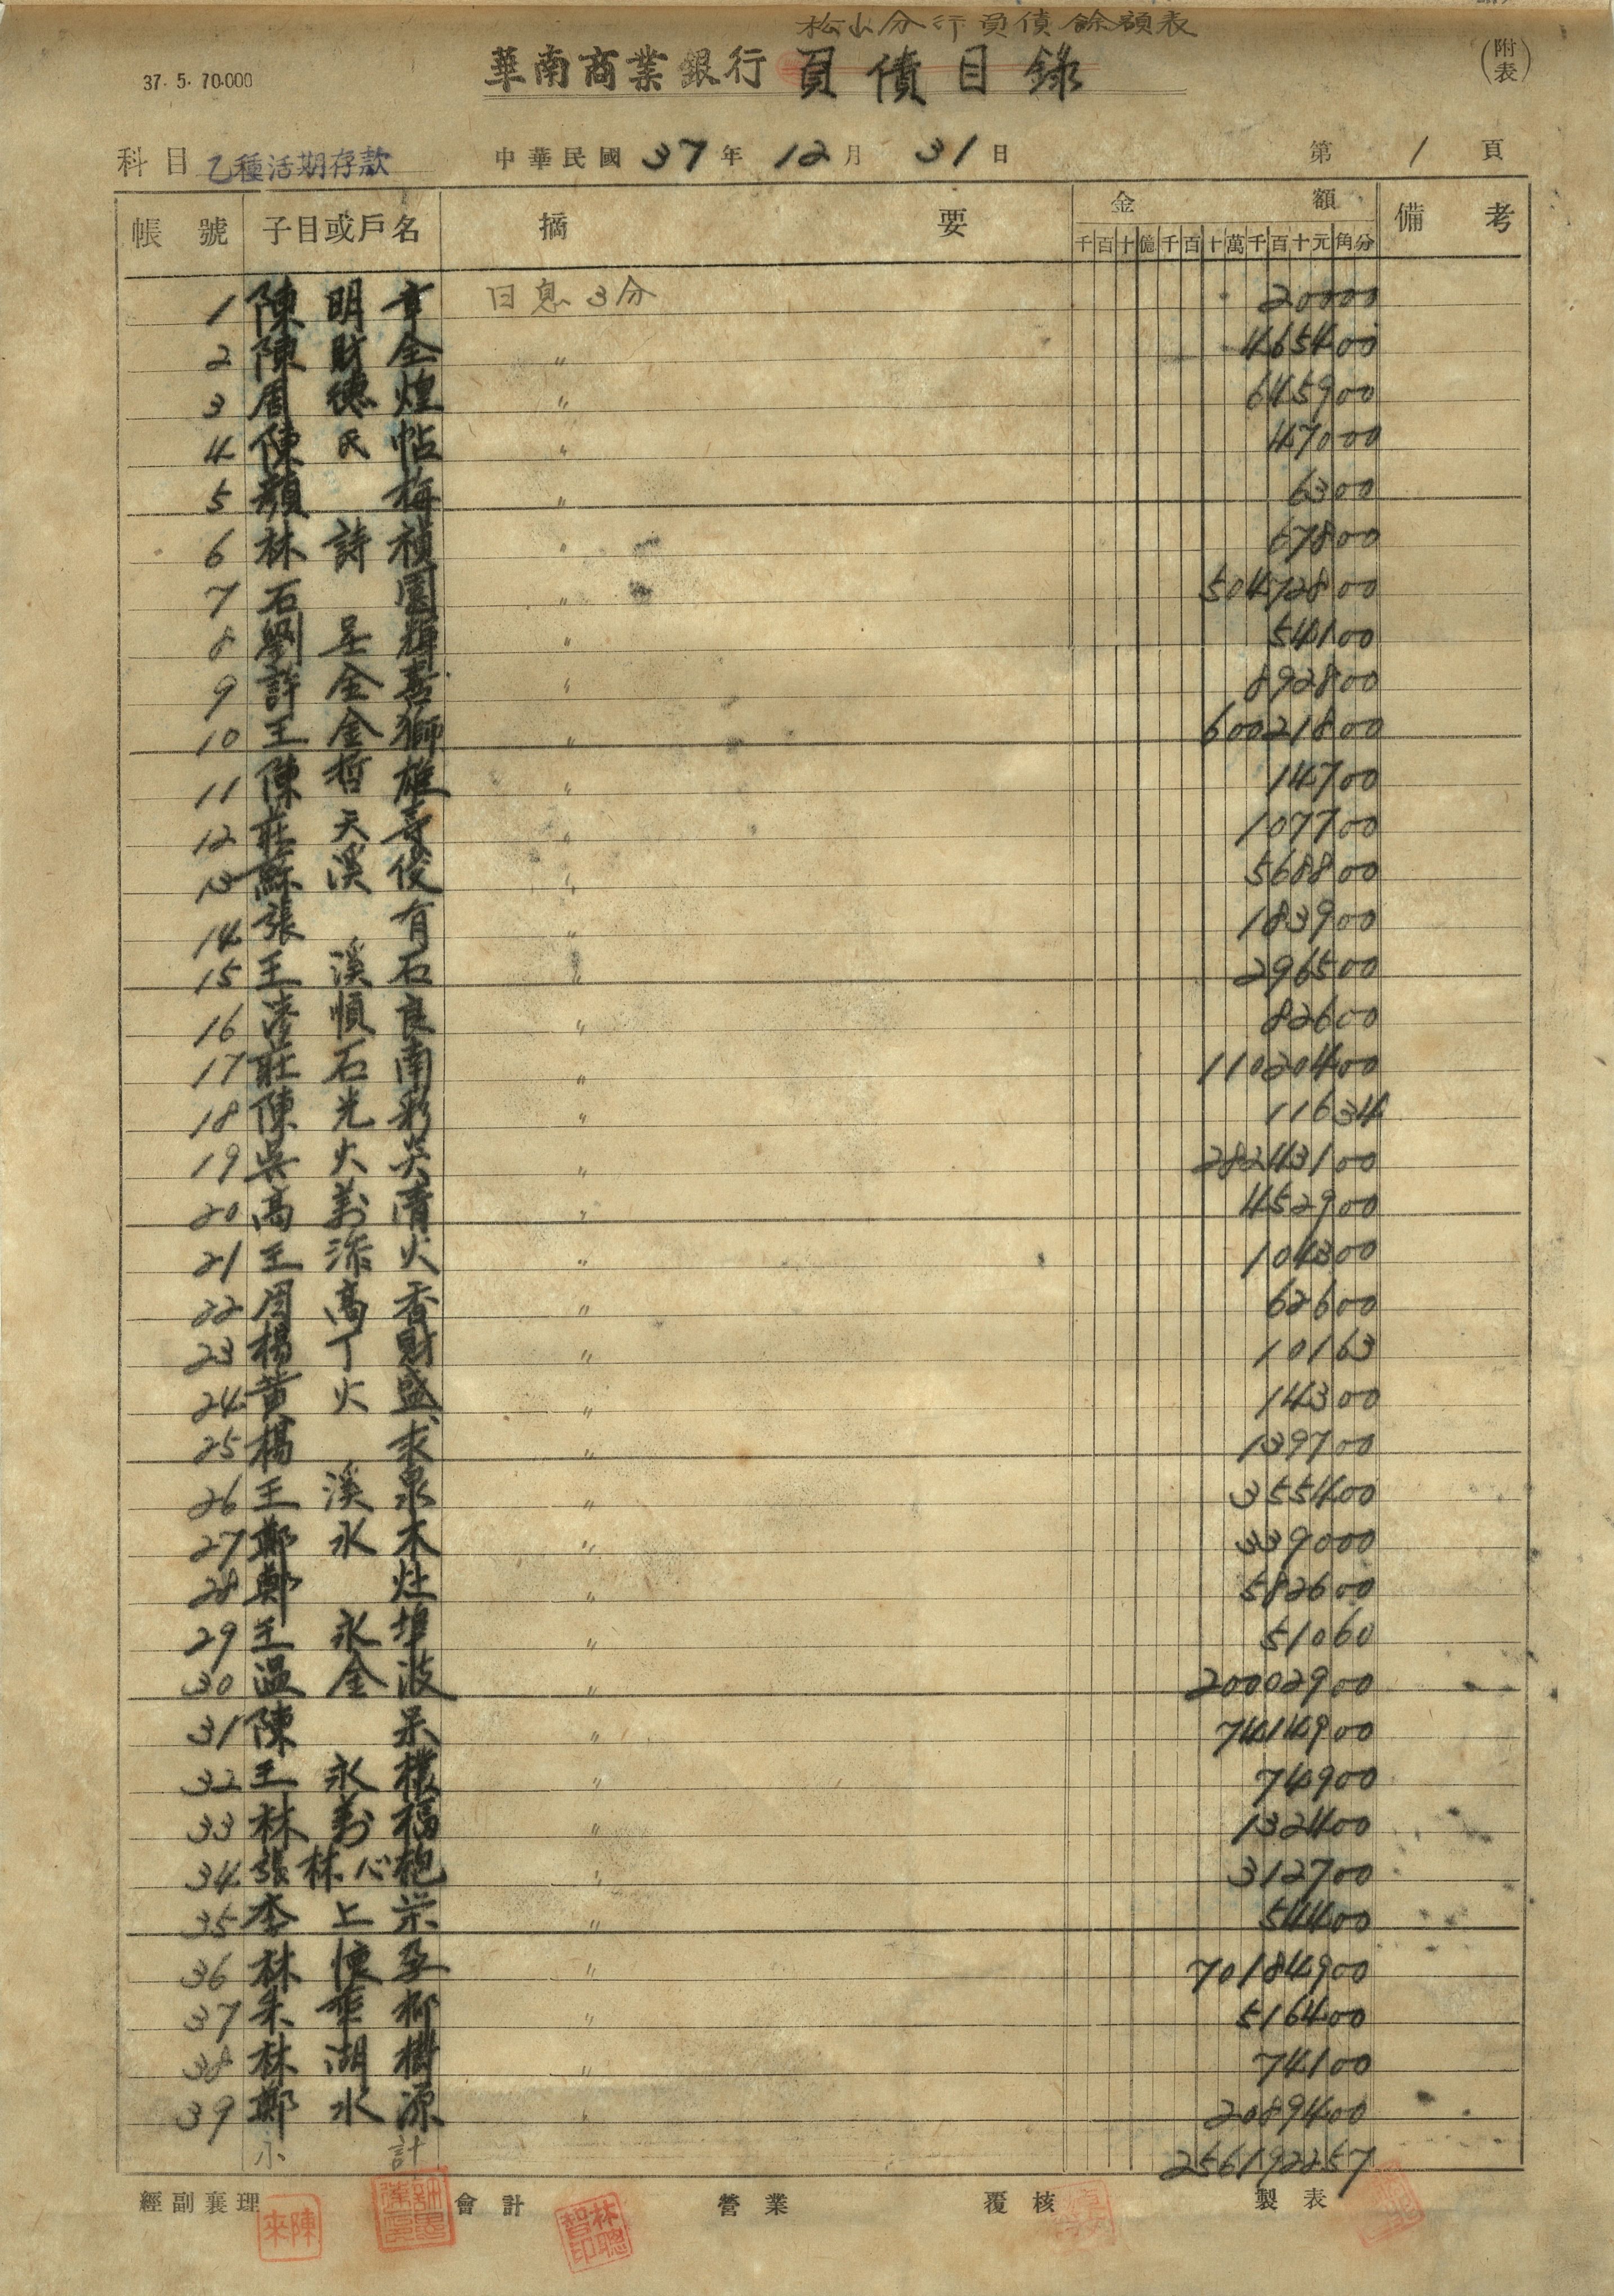 松山分行負債餘額表
華南商業銀行 負債目錄
(附表)
37. 5. 70.000
科目 乙種活期存款 中華民國 37 年 12 月 31 日 第 1 頁
帳號 子目或戶名 摘要 金額 備考
千百十億千百十萬千百十元角分
1 陳明章 日息3分 20000
2 陳財全 〃 465400
3 周德煌 〃 645900
4 陳民帖 〃 47000
5 顏梅 〃 6300
6 林詩禎 〃 67800
7 石園 〃 50472800
8 劉呈輝 〃 54100
9 許金喜 〃 892800
10 王金獅 〃 60021800
11 陳哲雄 〃 14700
12 莊天奇 〃 107700
13 蘇溪俊 〃 568800
14 張有 〃 183900
15 王溪石 〃 296500
16 順良 〃 82600
17 莊石南 〃 11020400
18 陳光彩 〃 11634
19 吳火炎 〃 28243100
20 高萬清 〃 452900
21 王添火 〃 104300
22 周高香 〃 62600
23 楊丁財 〃 10163
24 黃火盛 〃 14300
25 楊求 〃 139700
26 王溪泉 〃 355400
27 鄭水木 〃 339000
28 鄭灶 〃 582600
29 王永埤 〃 51060
30 溫金波 〃 20002900
31 陳呆 〃 7414900
32 王永樸 〃 74900
33 林萬福 〃 132400
34 張林心枹 〃 312700
35 李上榮 〃 54400
36 林懷孕 〃 70184900
37 朱華柳 〃 516400
38 林湖樹 〃 74100
39 鄭水源 2089400
小計 256192257
經副襄理 會計 營業 覆核 製表
陳來
林聰智印